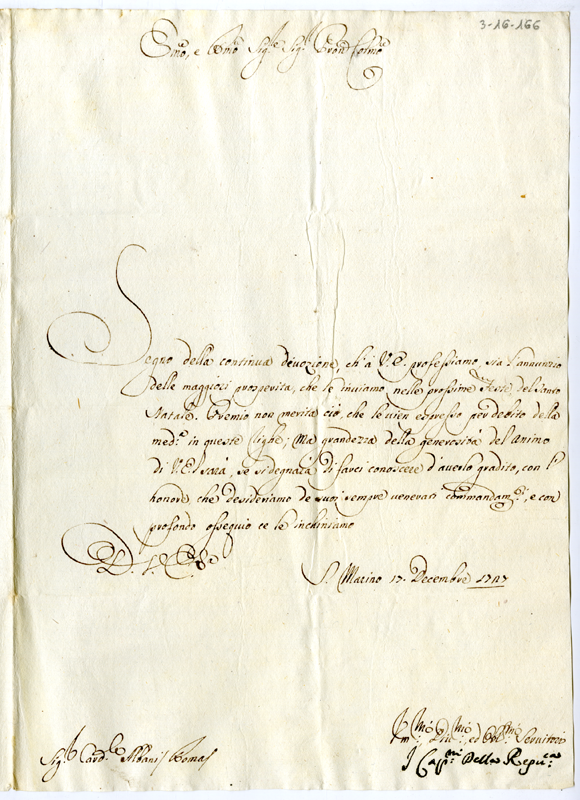 3-16-166
Emo, e Rmo Sig.re Sig.r Pron Colmo
Segno della continua devozione, ch'à V.E. professiamo, sia l'annunzio
delle maggiori prosperità, che le inviamo nelle prossime Feste del Santo
Natale. Premio non merita ciò, che le vien espresso per debito dalla
med.a in queste righe; Ma grandezza della generosità del'Animo
di V.E. sarà, se si degnarà di farci conoscere d'averlo gradito, con l'
honore che desideriamo de suoi sempre venerati commandam.ti, e con
profondo ossequio ce le inchiniamo
D. V. E.
S. Marino 17. Decembre 1747
Sig.r Card.le Albani Roma
Um.mi Div.mi ed Obl.mi Servitori
I Cap.ni Della Repu.ca